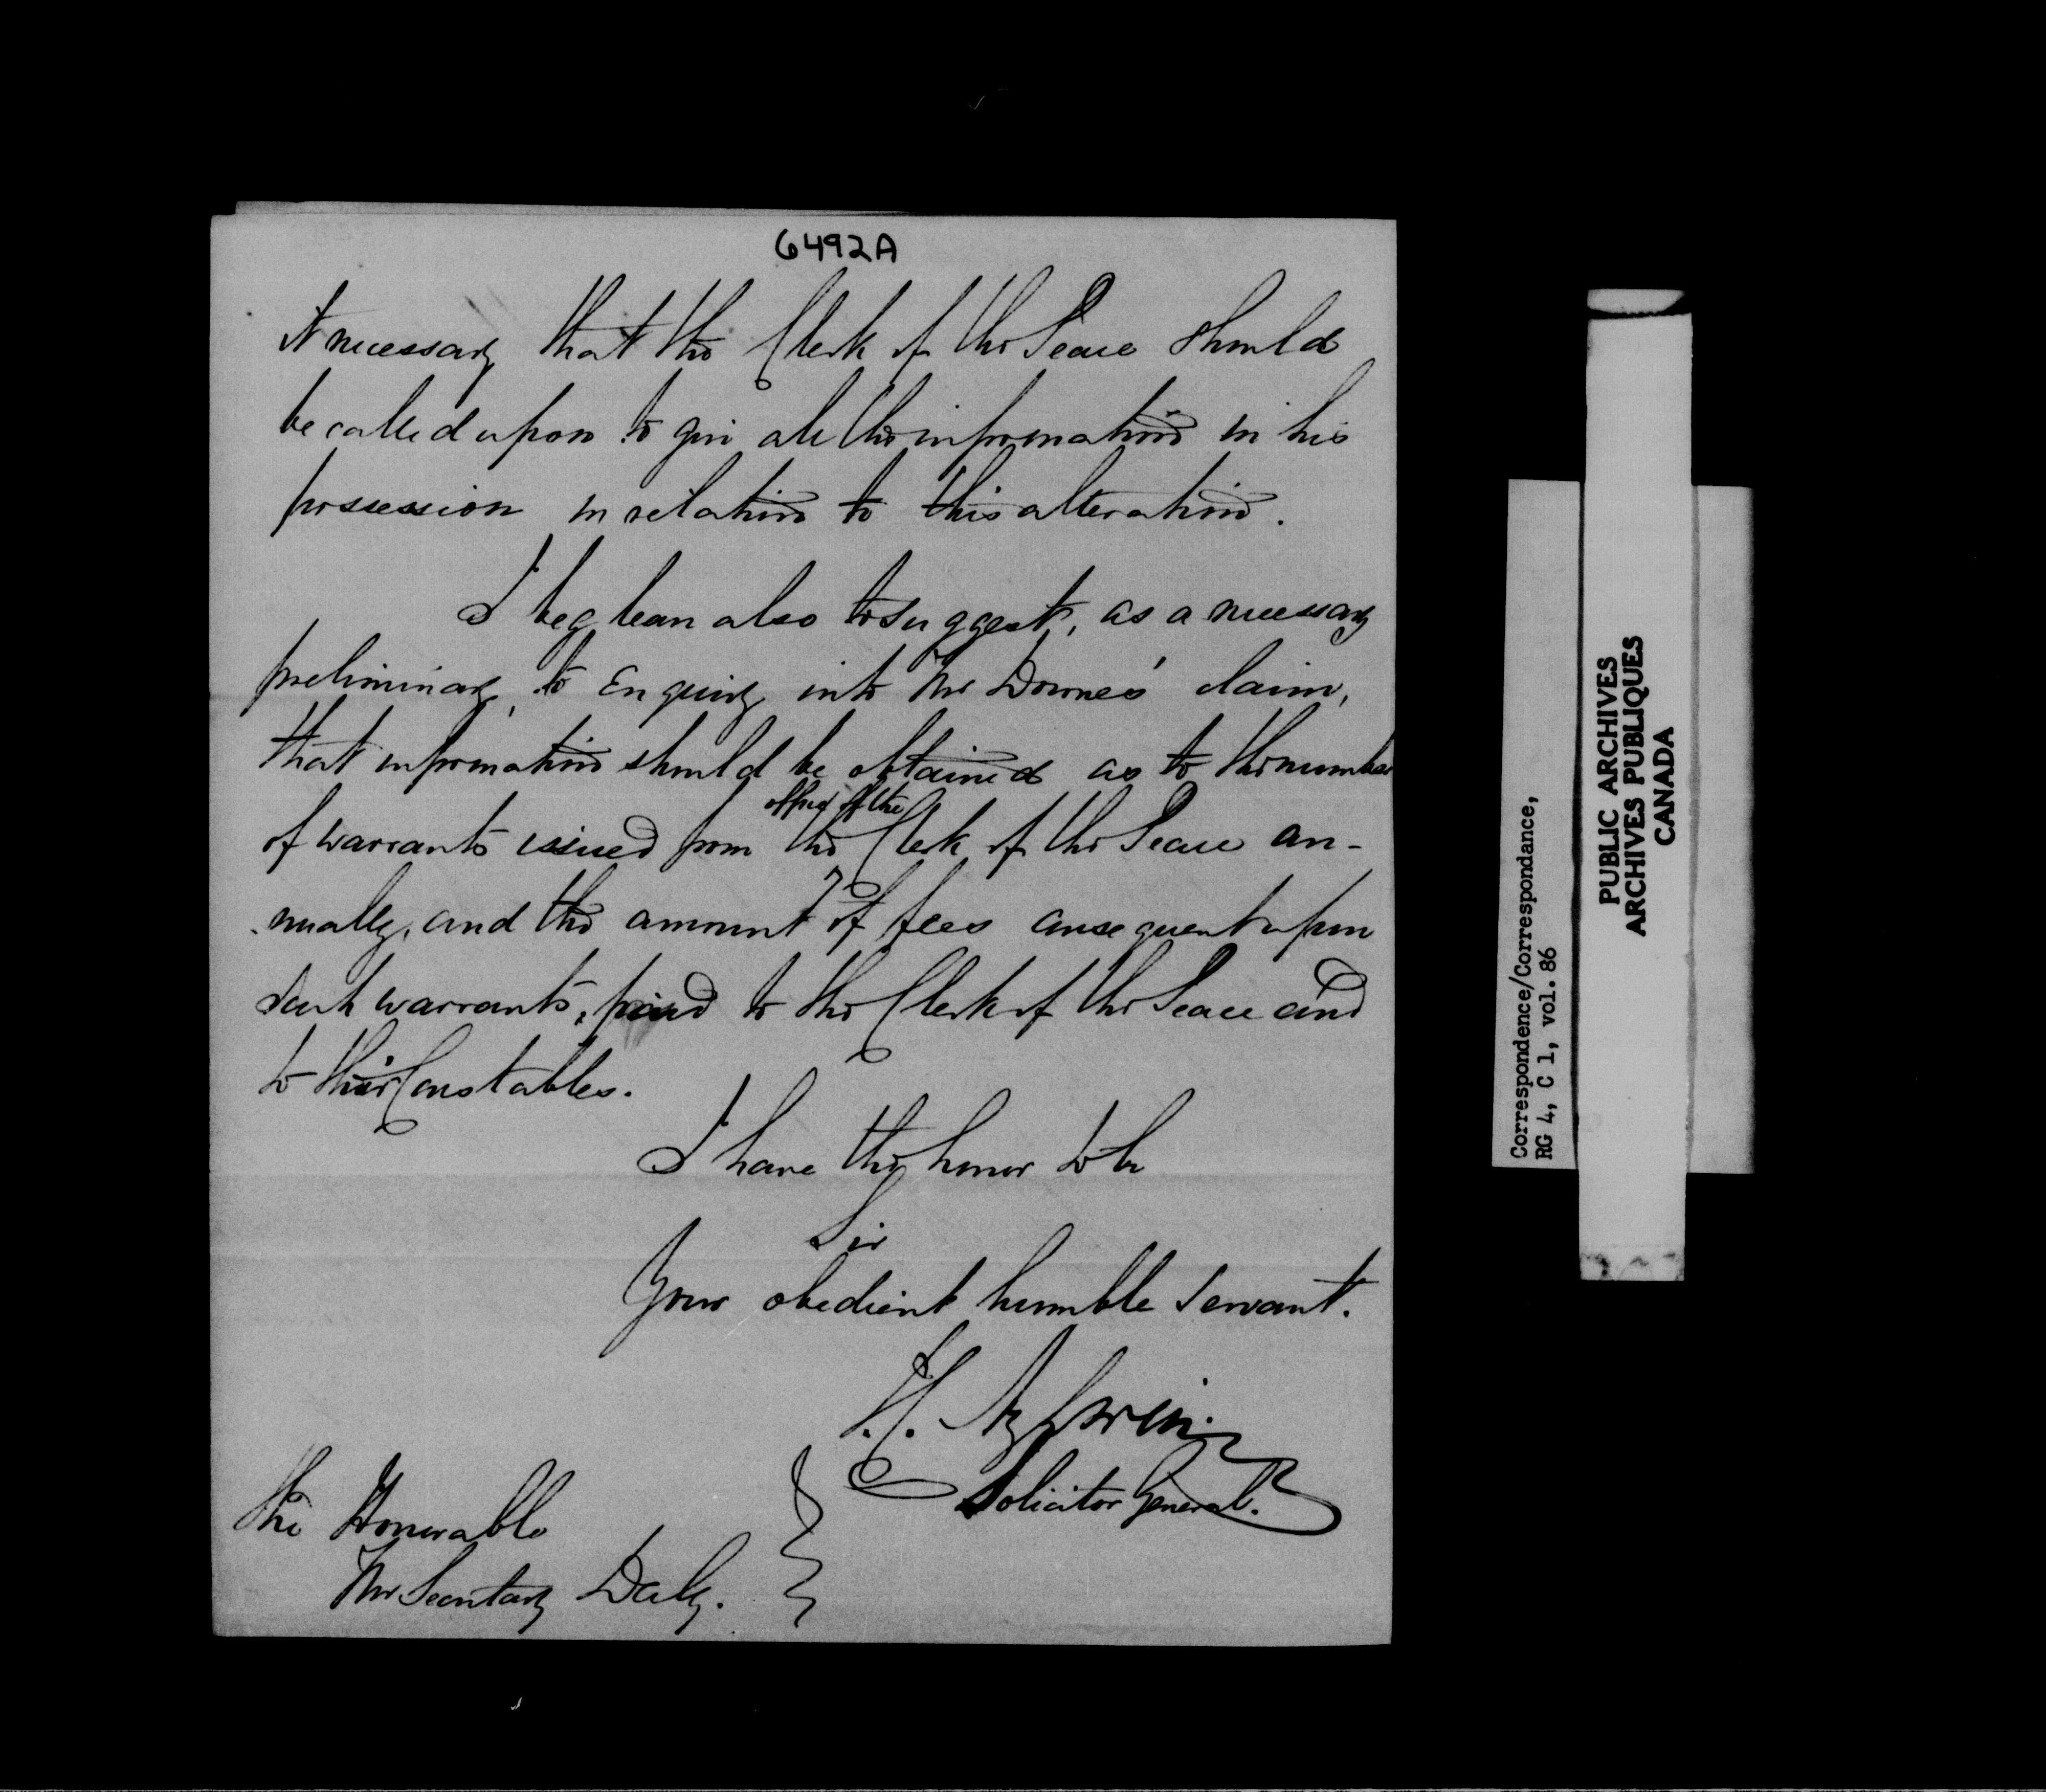 6492A
it necessary that the Clerk of the Peace should
be called upon to give all the information in his
possession in relation to this alteration.
I beg leave also to suggest, as a necessary
preliminary, to Enquiry into Mr Downes' claim,
that information should be obtained as to the number
office of the
of warrants issued from the Clerk of the Peace an-
nually, and the amount of fees consequent upon
such warrants, paid to the Clerk of the Peace and
to their Constables.
I have the honor to be
Sir
Your obedient humble Servant.
T. C. Aylwin.
Solicitor General.
The Honorable
Mr Secretary Daly.
Correspondence/Correspondance,
RG 4, C 1, vol. 86
PUBLIC ARCHIVES
ARCHIVES PUBLIQUES
CANADA